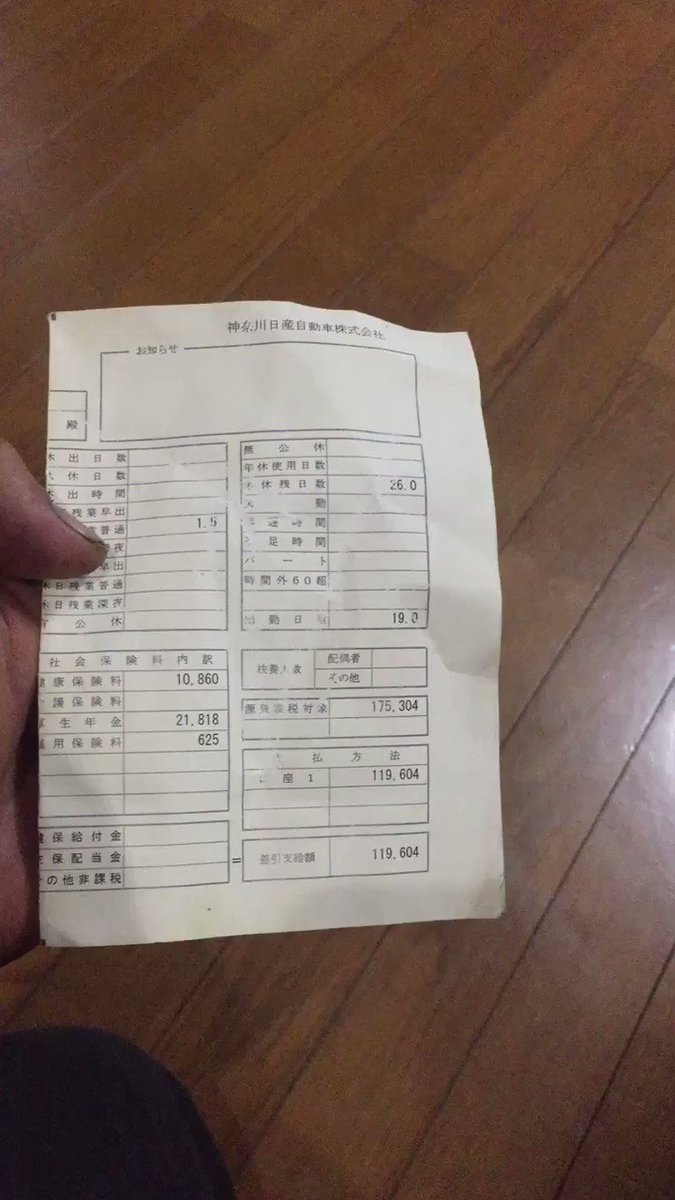 神奈川日産自動車株式会社
お知らせ
殿
出日数
休日数
出時間
残業早出
業普通 1.5
夜
早出
休日残業普通
休日残業深夜
公休
無公休
年休使用日数
休残日数 26.0
勤
時間
足時間
パート
時間外60超
出勤日数 19.0
社会保険料内訳
健康保険料 10,860
介護保険料
厚生年金 21,818
雇用保険料 625
扶養人数
配偶者
その他
源泉課税対象 175,304
払方法
口座1 119,604
健保給付金
保配当金
その他非課税
=
差引支給額 119,604